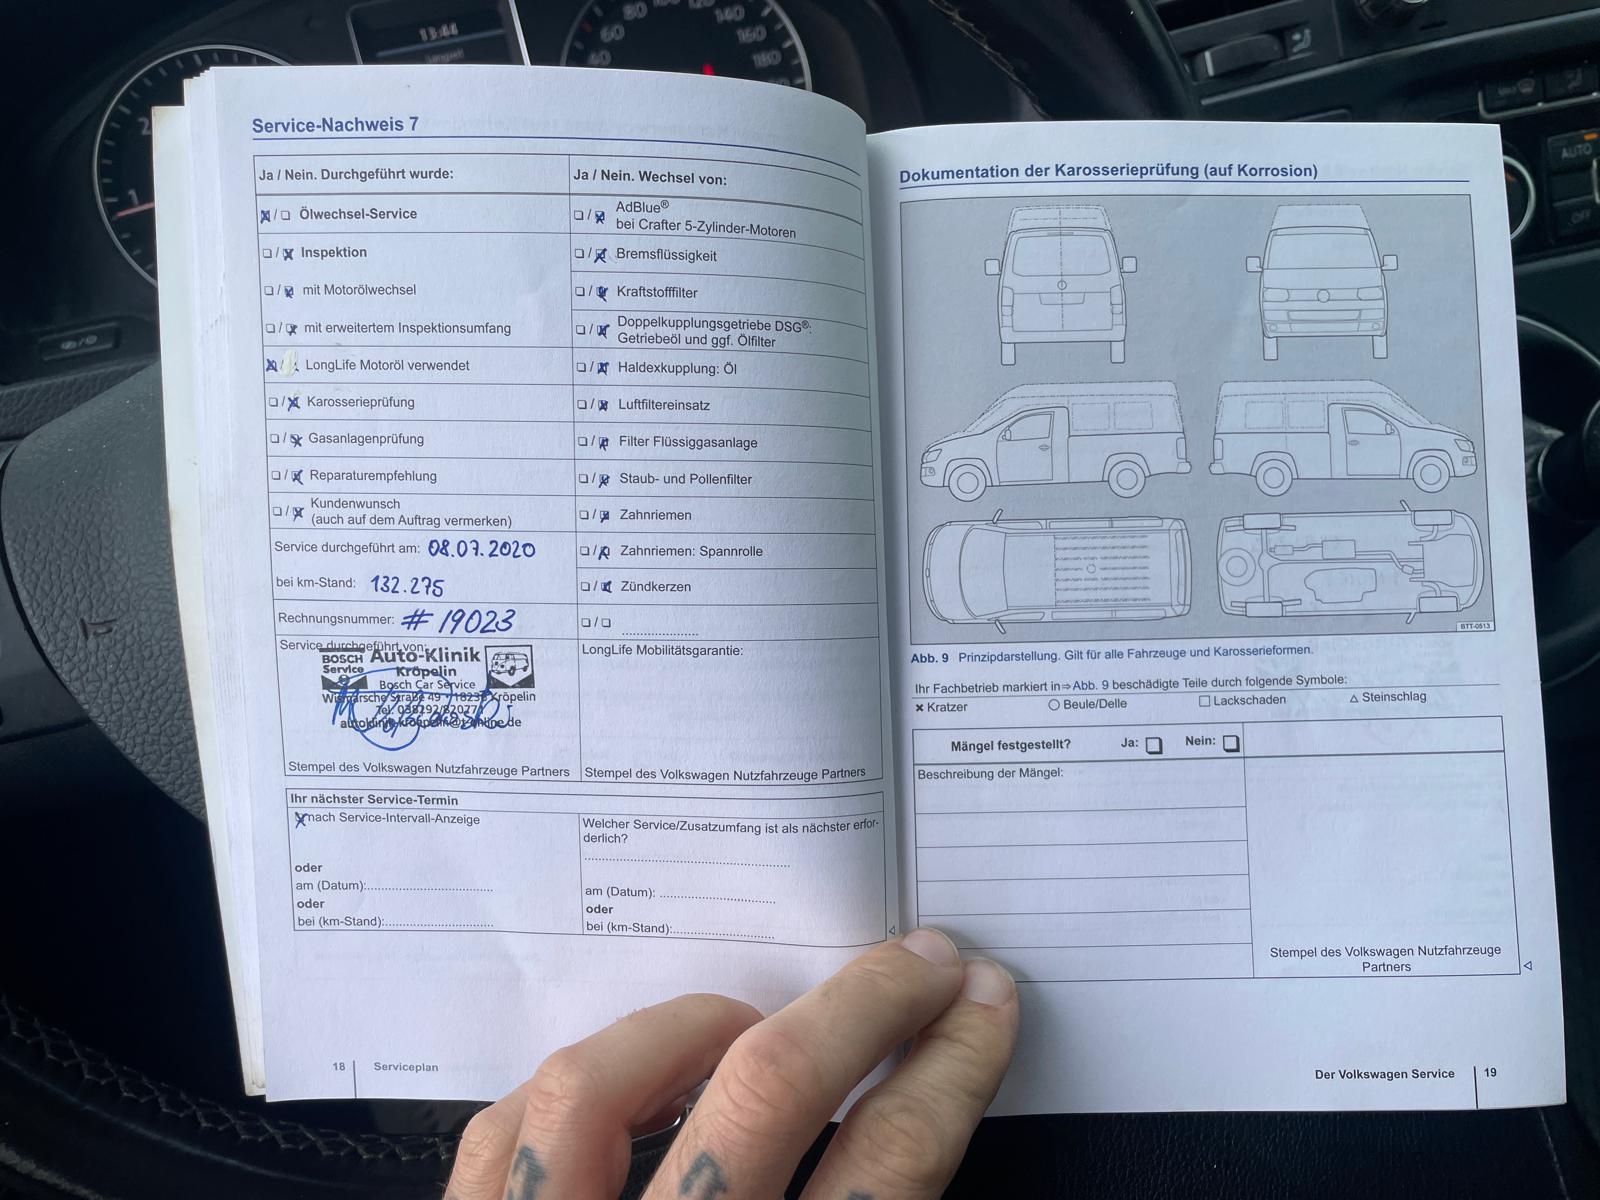 13:44
80
100
120
140
60
160
40
180
2
1
AUTO
OFF
Service-Nachweis 7
Ja / Nein. Durchgeführt wurde:
Ölwechsel-Service
Inspektion
mit Motorölwechsel
mit erweitertem Inspektionsumfang
LongLife Motoröl verwendet
Karosserieprüfung
Gasanlagenprüfung
Reparaturempfehlung
Kundenwunsch
(auch auf dem Auftrag vermerken)
Service durchgeführt am: 08.07.2020
bei km-Stand: 132.275
Rechnungsnummer: # 19023
Service durchgeführt von:
BOSCH Service
Auto-Klinik
Kröpelin
Bosch Car Service
Wismarsche Straße 49 · 18236 Kröpelin
Tel. 038292/82077
autoklinik-kroepelin@t-online.de
Stempel des Volkswagen Nutzfahrzeuge Partners
Ja / Nein. Wechsel von:
AdBlue®
bei Crafter 5-Zylinder-Motoren
Bremsflüssigkeit
Kraftstofffilter
Doppelkupplungsgetriebe DSG®:
Getriebeöl und ggf. Ölfilter
Haldexkupplung: Öl
Luftfiltereinsatz
Filter Flüssiggasanlage
Staub- und Pollenfilter
Zahnriemen
Zahnriemen: Spannrolle
Zündkerzen
LongLife Mobilitätsgarantie:
Stempel des Volkswagen Nutzfahrzeuge Partners
Ihr nächster Service-Termin
nach Service-Intervall-Anzeige
oder
am (Datum):
oder
bei (km-Stand):
Welcher Service/Zusatzumfang ist als nächster erfor-
derlich?
am (Datum):
oder
bei (km-Stand):
18
Serviceplan
Dokumentation der Karosserieprüfung (auf Korrosion)
BTT-0513
Abb. 9 Prinzipdarstellung. Gilt für alle Fahrzeuge und Karosserieformen.
Ihr Fachbetrieb markiert in⇒Abb. 9 beschädigte Teile durch folgende Symbole:
× Kratzer ○ Beule/Delle □ Lackschaden △ Steinschlag
Mängel festgestellt? Ja: Nein:
Beschreibung der Mängel:
Stempel des Volkswagen Nutzfahrzeuge
Partners
Der Volkswagen Service
19